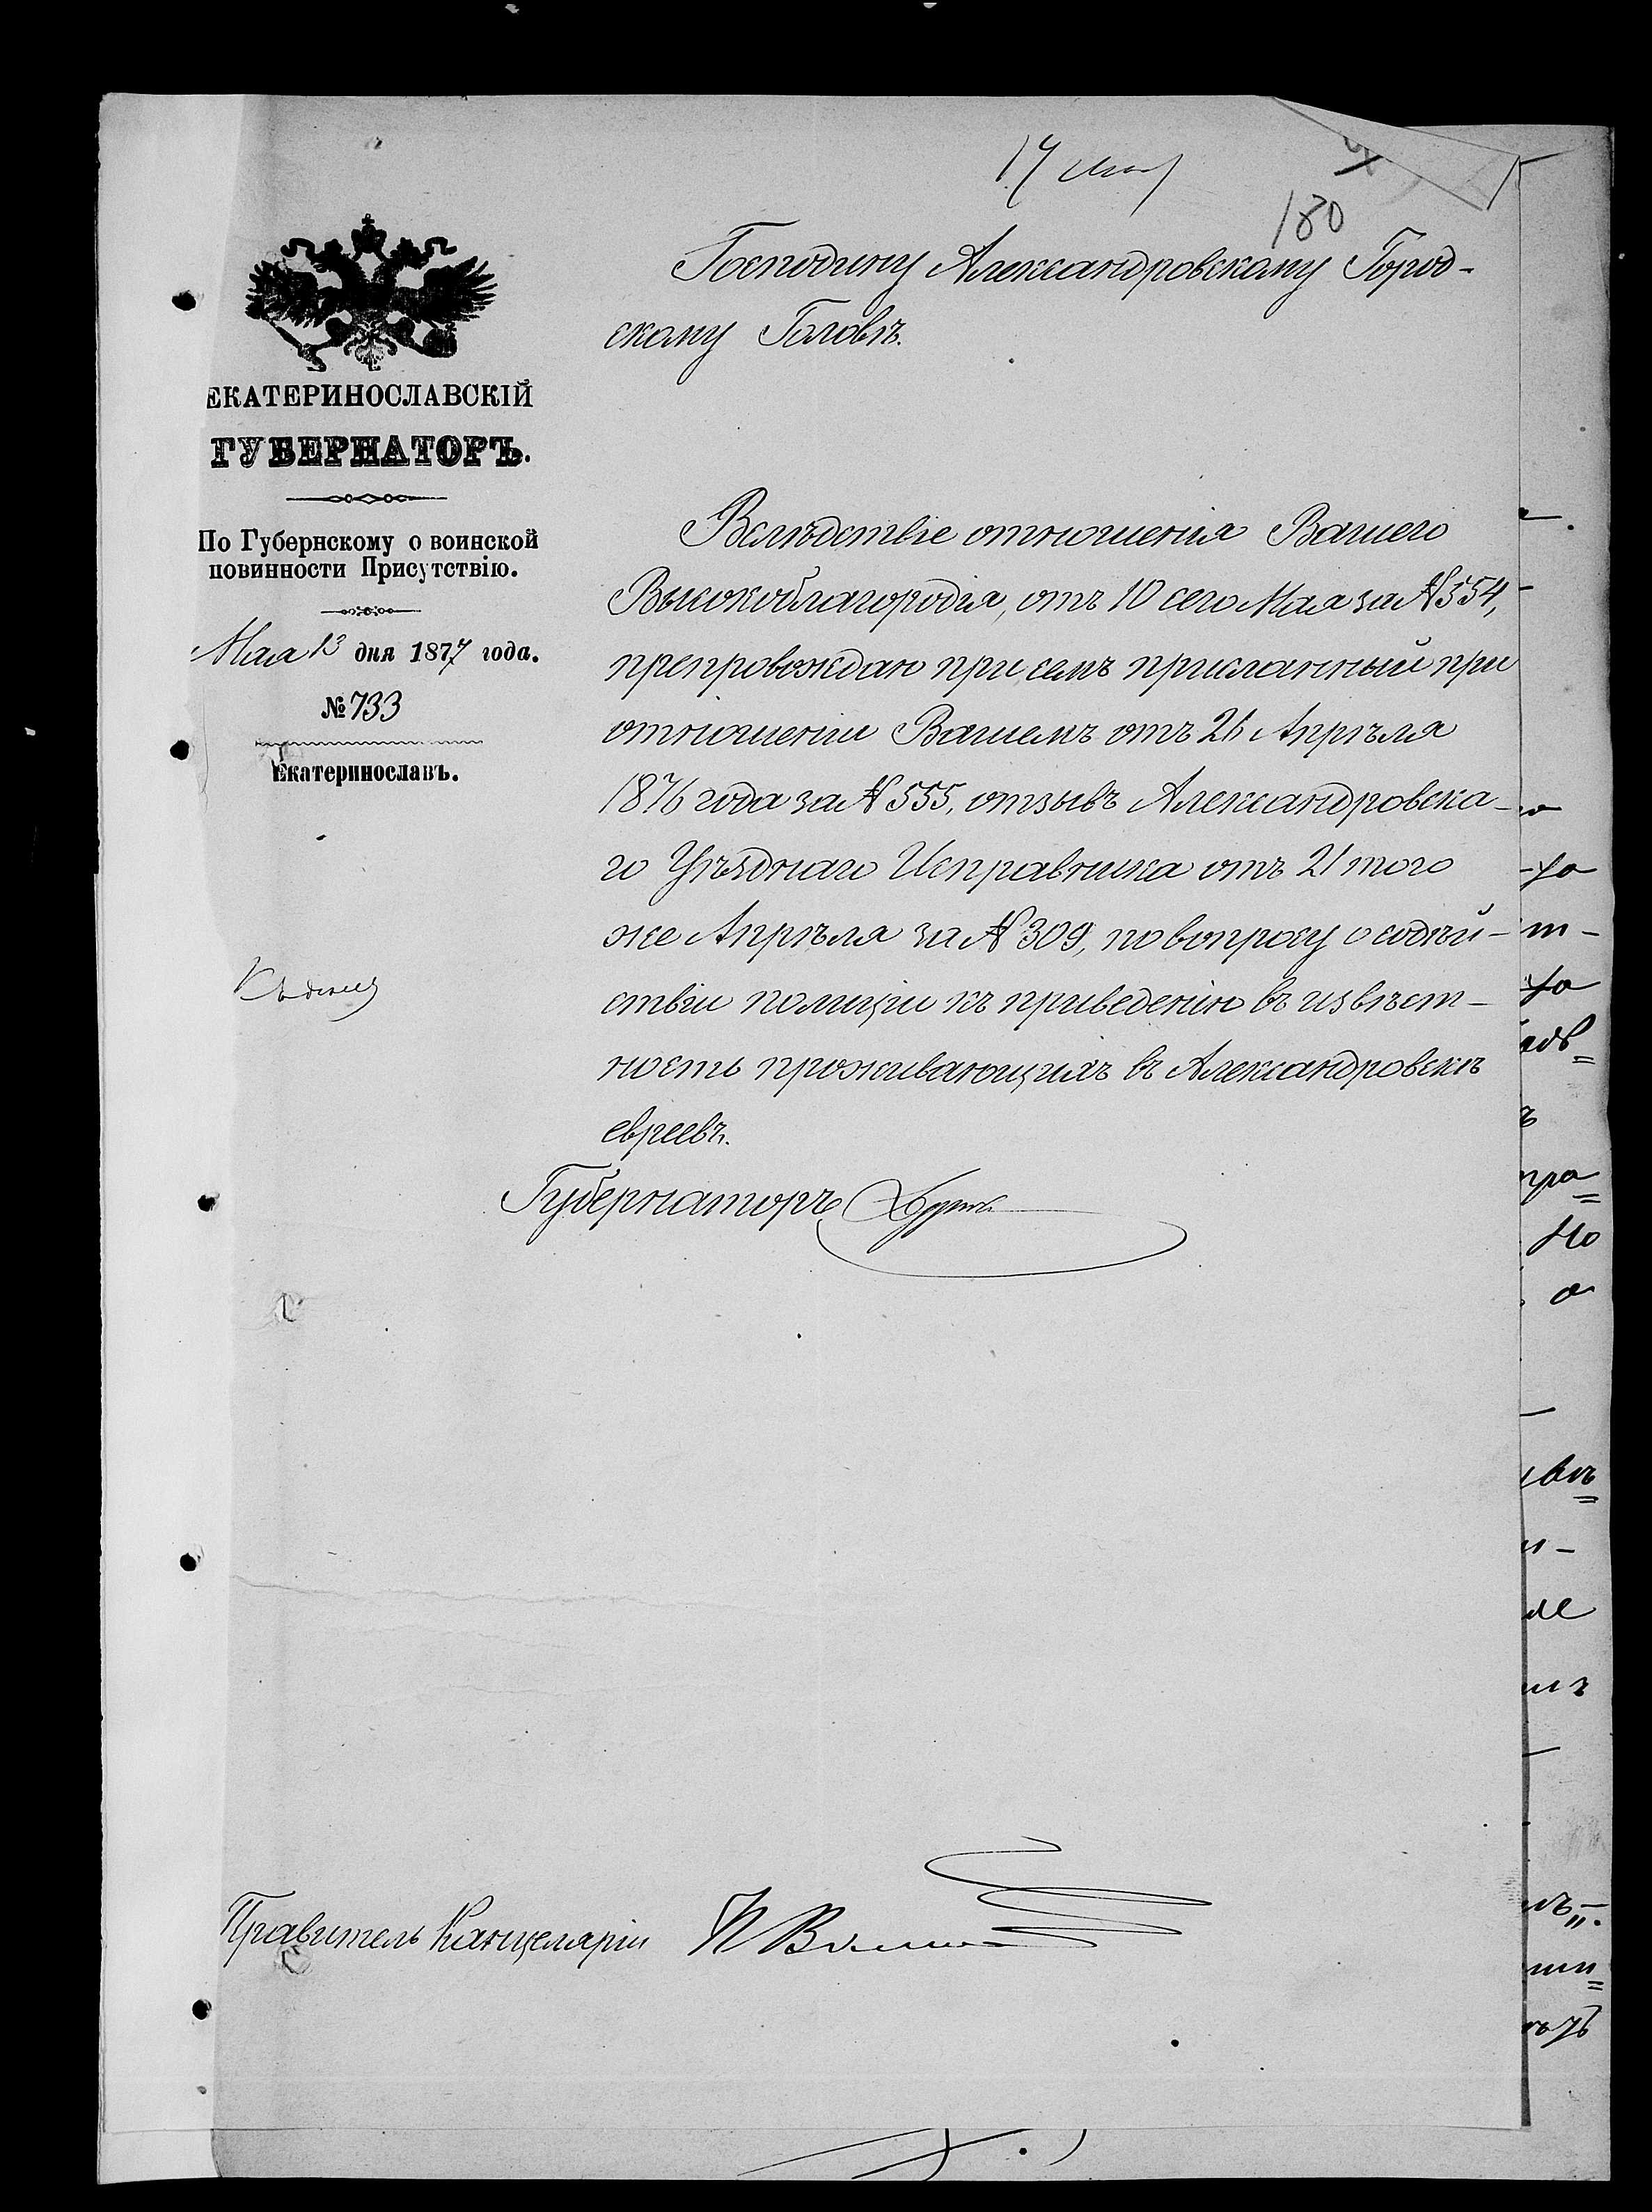 180
ЕКАТЕРИНОСЛАВСКІЙ
ГУБЕРНАТОРЪ.
По Губернскому о воинской
повинности Присутствію.
Мая 13 дня 1877 года.
№ 733
Екатеринославъ.
Господину Александровскому Город-
скому Головѣ.
Вслѣдствіе отношенія Вашего
Высокоблагородія, отъ 10 сего Мая за № 554,
препровождаю при семъ присланный при
отношеніи Вашемъ отъ 26 Апрѣля
1876 года за № 555, отзывъ Александровска-
го Уѣзднаго Исправника отъ 21 того
же Апрѣля за № 309, по вопросу о содѣй-
ствіи полиціи къ приведенію въ извѣст-
ность проживающихъ въ Александровскѣ
евреевъ.
Губернаторъ
Правитель Канцеляріи